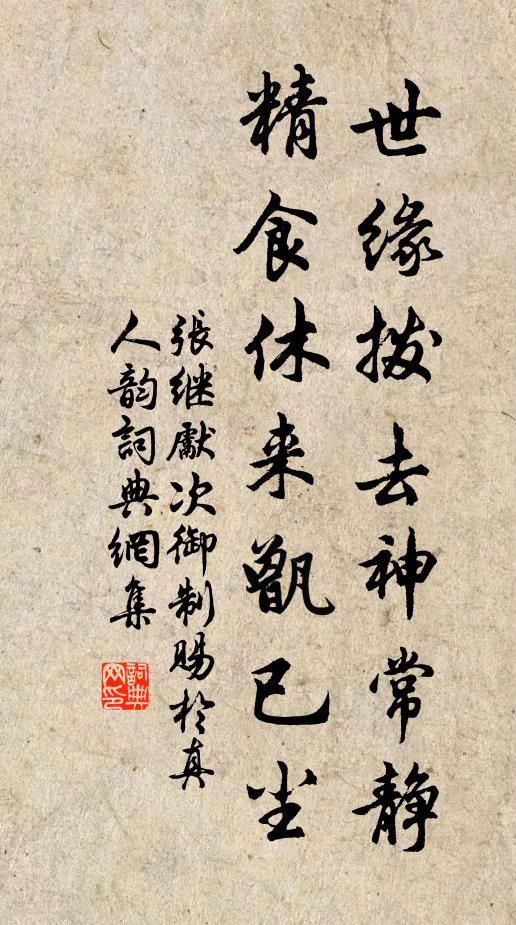 世缘拨去神常静
精食休来甑已尘
張继獻次御制賜於真
人韵詞典網集
詞典網印